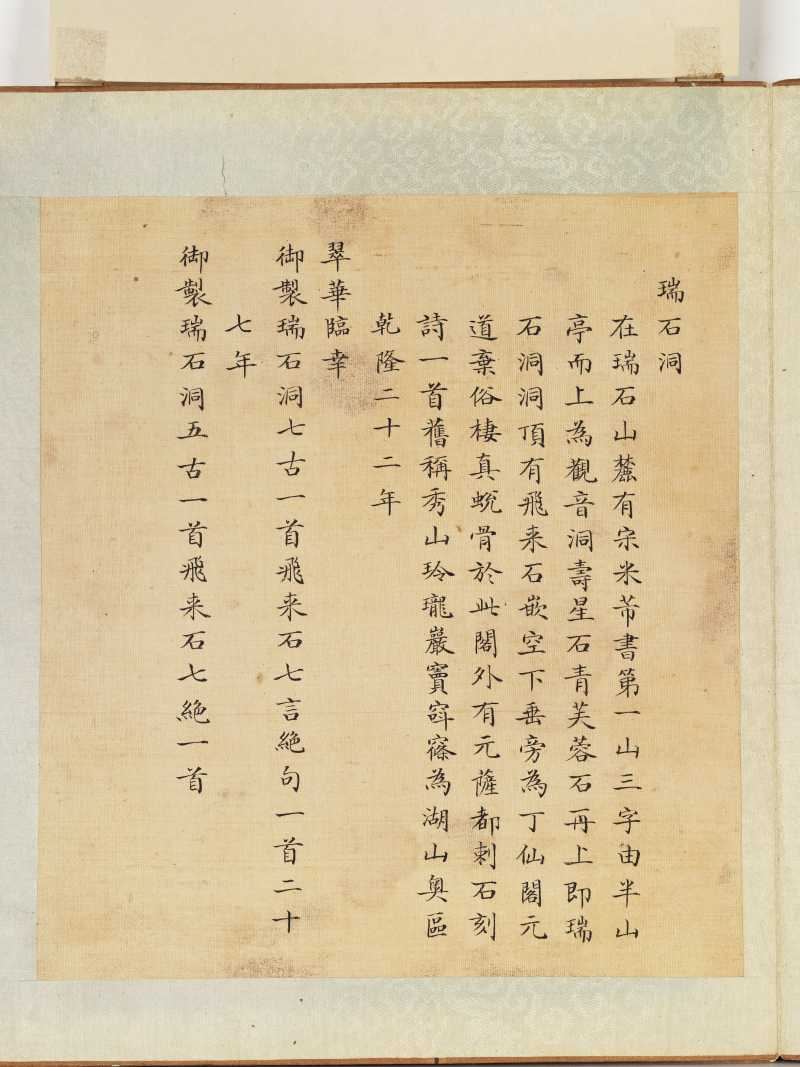 瑞石洞
在瑞石山麓有宋米芾書第一山三字由半山
亭而上為觀音洞壽星石青芙蓉石再上即瑞
石洞洞頂有飛来石嵌空下垂旁為丁仙閣元
道棄俗棲真蛻骨於此閣外有元薩都剌石刻
詩一首舊稱秀山玲瓏巖竇窱為湖山奧區
乾隆二十二年
翠華臨幸
御製瑞石洞七古一首飛来石七言絶句一首二十
七年
御製瑞石洞五古一首飛来石七絶一首